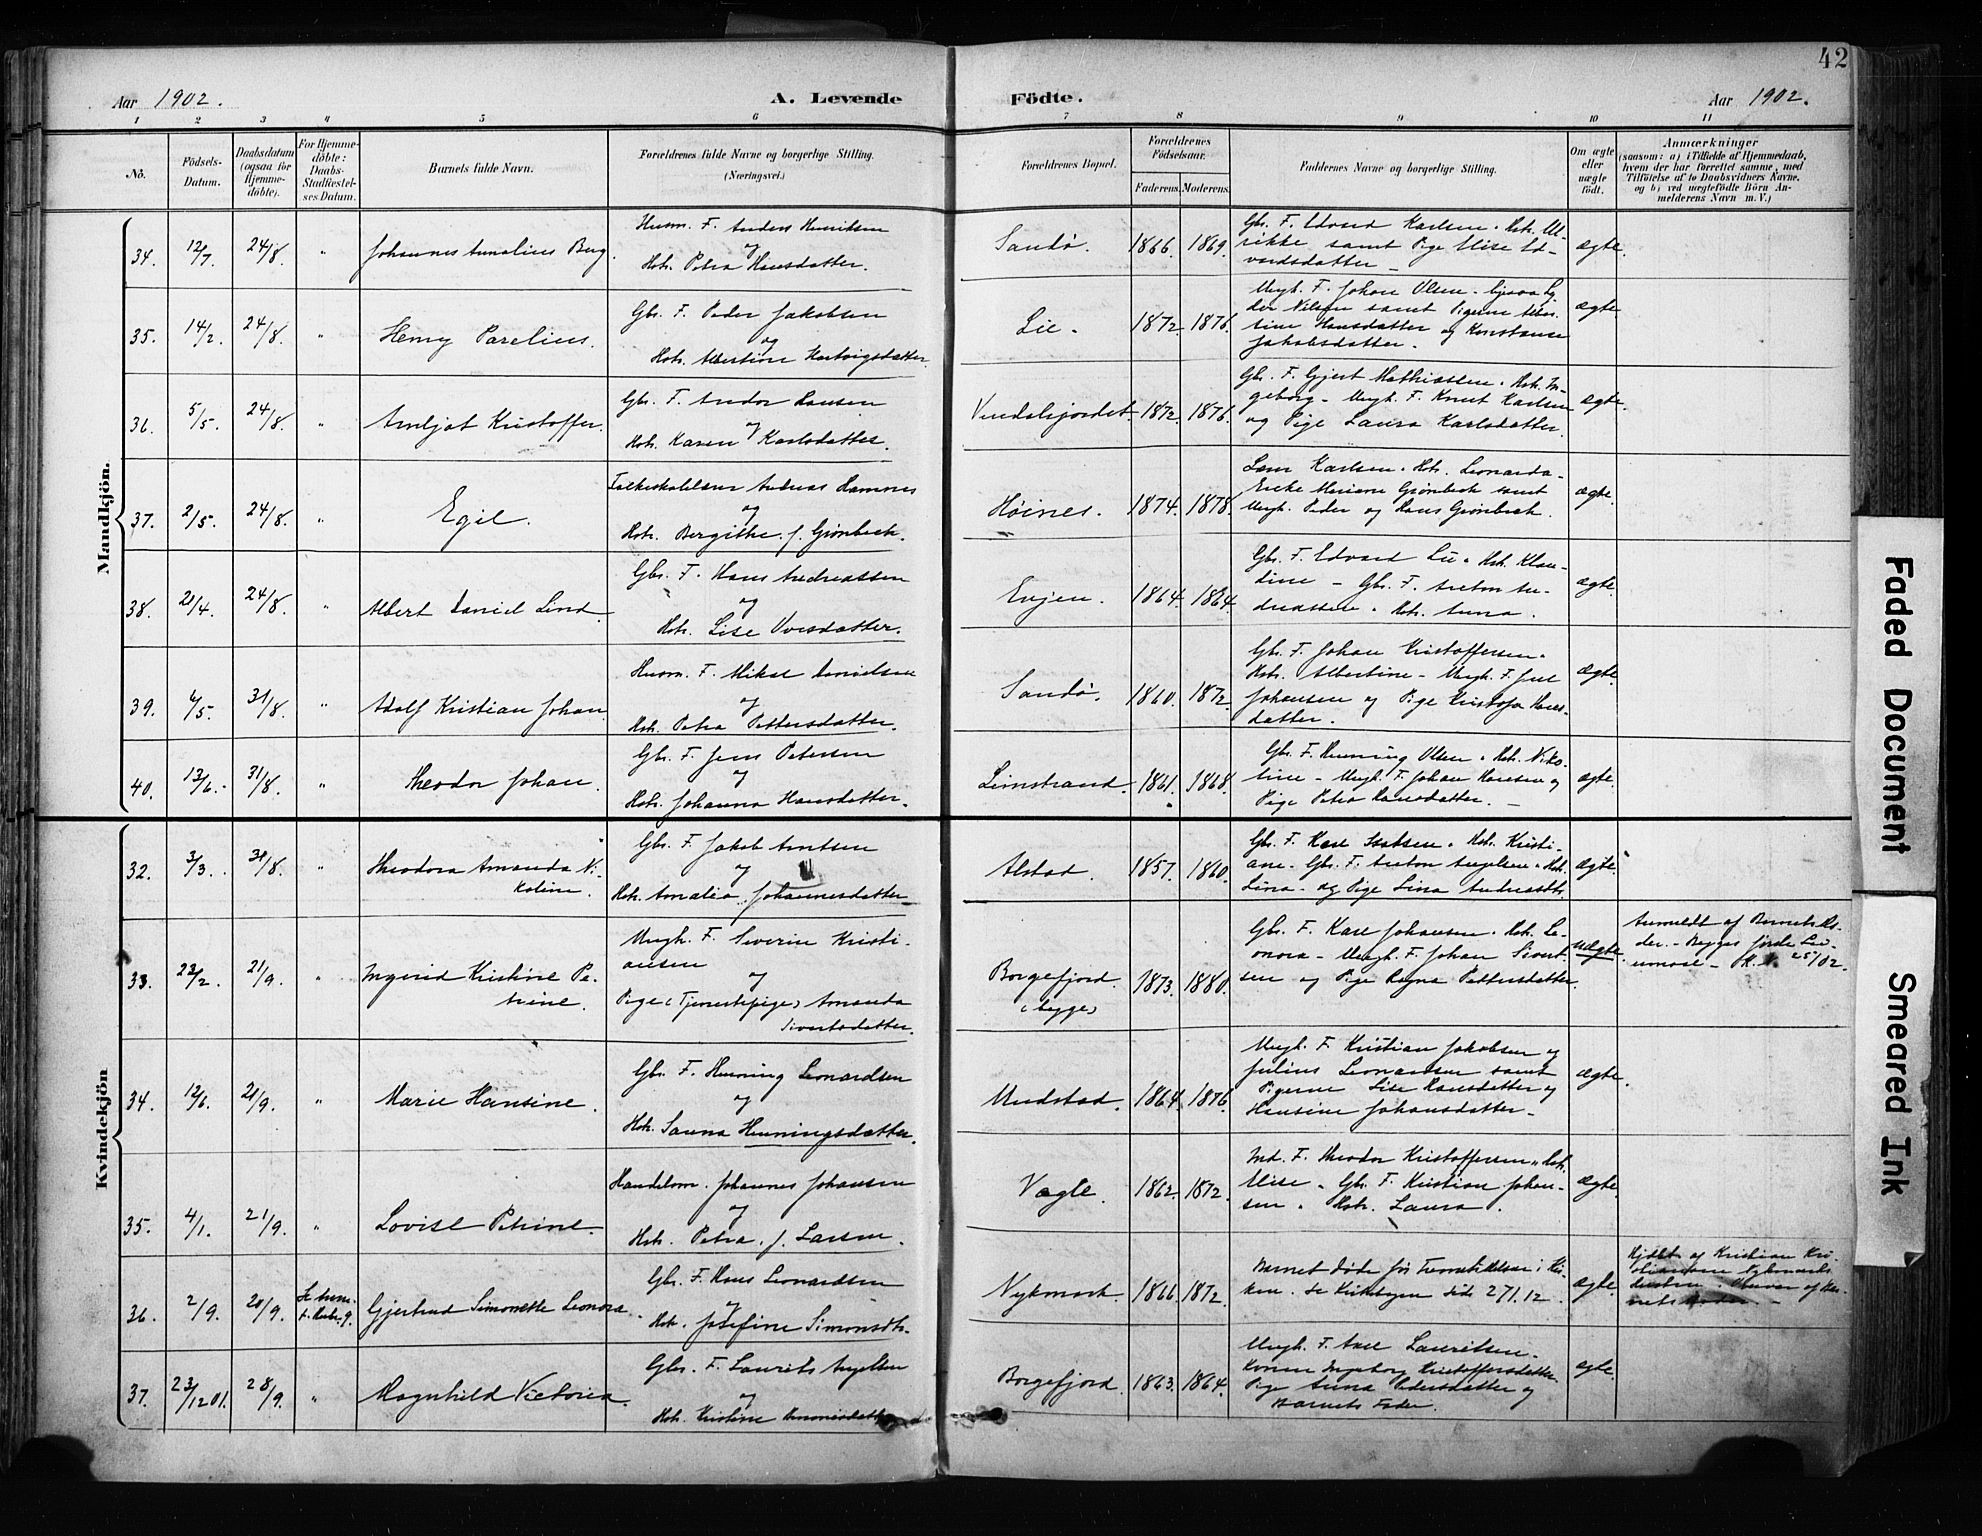 42
Aar 1902.
A. Levende
Födte.
Aar 1902.
1 2 3 4 5 6 7 8 9 10 11
No.
Födsels-
Datum.
Daabsdatum
(ogsaa for
Hjemme-
döbte).
For Hjemme-
döbte:
Daabs-
Stadfæstel-
ses Datum.
Barnets fulde Navn.
Forældrenes fulde Navne og borgerlige Stilling.
(Næringsvei.)
Forældrenes Bopæl.
Forældrenes
Födselsaar.
Faderens. Moderens.
Faddernes Navne og borgerlige Stilling.
Om ægte
eller
uægte
födt.
Anmærkninger
(saasom: a) i Tilfælde af Hjemmedaab,
hvem der har forrettet samme, med
Tilföielse af to Daabsvidners Navne.
og b) ved uægtefödte Börn An-
melderens Navn m. V.)
Mandkjön.
34. 12/7. 24/8. " Johannes Annalius Berg.
Husm. F. Anders Henriksen
og
Hstr. Petra Hansdatter.
Sandö. 1866. 1869.
Gbr. F. Edvard Karlsen. Hstr. Ul-
rikke samt Pige Elise Ed-
vardsdatter
ægte.
35. 14/2. 24/8. " Henry Parelius.
Gbr. F. Peder Jakobsen
og
Hstr. Albertine Hartvigsdatter.
Lie. 1872. 1876.
Ungk. F. Johan Olsen
samt Pigerne
Hansdatter og Konstanse
Jakobsdatter.
ægte.
36. 5/5. 24/8. " Arnljot Kristoffer.
Gbr. F. Andor Hansen
og
Hstr. Karen Karlsdatter.
1872. 1876.
Gbr. F. Gjert Mathiassen. Hstr. In-
geborg - Ungk. F. Knut Karlsen
og Pige Laura Karlsdatter.
ægte.
37. 2/5. 24/8. " Egil.
Folkeskolelærer Andreas Hamnes
og
Hstr. Bergithe f. Grönbech.
Höines. 1874. 1878.
Karlsen. Hstr. Leonarda.
Enke Mariane Grönbech samt
Ungk. Peder og Hans Grönbech.
ægte.
38. 21/4. 24/8. " Albert Daniel Lind.
Gbr. F. Hans Andreassen
og
Hstr. Lise Ovesdatter.
Evjen. 1864. 1864.
Gbr. F. Edvard Lie. Hstr. Klau-
dine - Gbr. F. Anton An-
dreassen. Hstr. Anna.
ægte.
39. 6/5. 31/8. " Adolf Kristian Johan.
Husm. F. Mikal Danielsen
og
Hstr. Petra Pettersdatter.
Sandö. 1860. 1872.
Gbr. F. Johan Kristoffersen.
Hstr. Albertine - Ungk. F. Juel
Johansen og Pige Kristofa Hans-
datter.
ægte.
40. 13/6. 31/8. " Theodor Johan.
Gbr. F. Jens Petersen
og
Hstr. Johanna Hansdatter.
Limstrand. 1861. 1868.
Gbr. F. Henning Olsen. Hstr. Niko-
line - Ungk. F. Johan Hansen og
Pige Petra Hansdatter.
ægte.
Kvindekjön
32. 3/3. 31/8. " Theodora Amanda Ni-
koline.
Gbr. F. Jakob Arntsen
og
Hstr. Amalia Johannesdatter
Alstad. 1857. 1860.
Gbr. F. Karl Isaksen. Hstr. Kristi-
ane. Gbr. F. Anton Angelsen. Hstr.
Lina - og Pige Lina Andreasdtr.
ægte.
33. 23/2. 21/9. " Ingerid Kristine Pe-
trine.
Ungk. F. Severin Kristi-
ansen
og
Pige (Tjenestepige) Amanda
Sivertsdatter.
Borgefjord.
(begge)
1873. 1880.
Gbr. F. Karl Johansen. Hstr. Le-
onora - Ungk. F. Johan Sivert-
sen og Pige Ragna Pettersdatter.
uægte.
Anmeldt af Barnets Fa-
der. - Begges förste Lei-
ermaal -
34. 12/6. 21/9. " Marie Hansine.
Gbr. F. Henning Leonardsen
og
Hstr. Sanna Henningsdatter.
Undstad. 1864. 1876.
Ungk. F. Kristian Jakobsen og
Julius Leonardsen samt
Pigerne Lise Hansdatter og
Hansine Johansdatter -
ægte.
35. 4/1. 21/9. " Lovise Petrine.
Handelsm. Johannes Johansen
og
Hstr. Petra f. Larsen.
Vagle. 1862. 1872.
Ind. F. Theodor Kristoffersen. Hstr.
Elise. Gbr. F. Kristian Johan-
sen. Hstr. Laura.
ægte.
36. 2/9. 20/9. Gjertrud Simonette Leonora.
Gbr. F. Hans Leonardsen
og
Hstr. Josefine Simonsdtr.
Nykmark. 1866. 1872.
Barnet döde för Fremstillelsen i Kir-
ken. Se Kirkebogen Side 271.12.
ægte.
Hjdbt. af Kristian Kri-
stiansen Nykmark
37. 23/12 01. 28/9. " Magnhild Victoria.
Gbr. F. Laurits Angelsen
og
Hstr. Kristine
Borgefjord. 1863. 1864.
Ungk. F. Axel Lauritsen.
Konen Ingeborg Kristoffersdatter.
Pige Anna Pedersdatter og
Barnets Fader.
ægte.
Faded Document
Smeared Ink